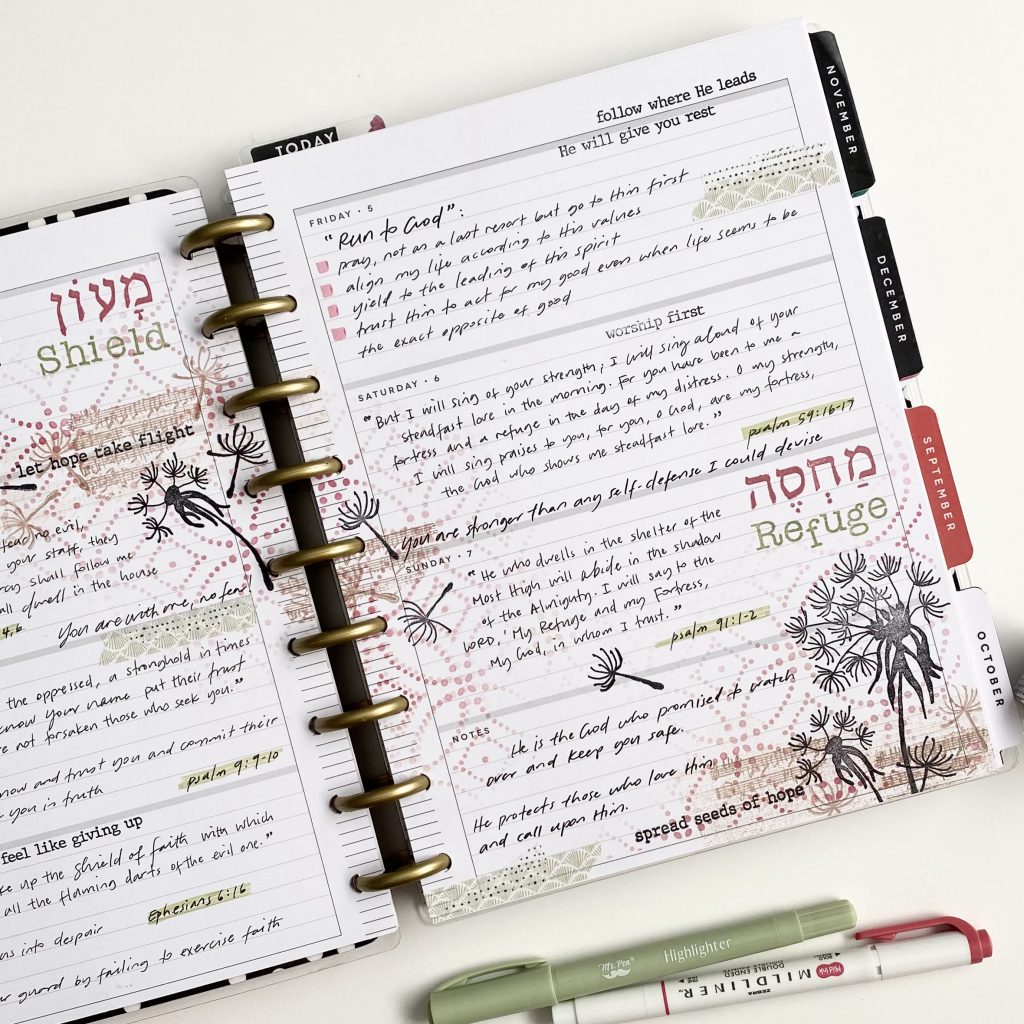 מָעוֹן
Shield
let hope take flight
fear no evil,
your staff, they
mercy shall follow me
dwell in the house
4,6
You are with me, no fear!
the oppressed, a stronghold in times
know your name put their trust
not forsaken those who seek you."
know and trust you and commit their
you in truth
psalm 9:9-10
feel like giving up
up the shield of faith with which
all the flaming darts of the evil one."
Ephesians 6:16
into despair
guard by failing to exercise faith
TODAY
follow where He leads
He will give you rest
FRIDAY • 5
"Run to God":
pray, not as a last resort but go to Him first
align my life according to His values
yield to the leading of His spirit
trust Him to act for my good even when life seems to be
the exact opposite of good
worship first
SATURDAY • 6
"But I will sing of your strength; I will sing aloud of your
steadfast love in the morning. For you have been to me a
fortress and a refuge in the day of my distress. O my strength,
I will sing praises to you, for you, O God, are my fortress,
the God who shows me steadfast love."
psalm 59:16-17
You are stronger than any self-defense I could devise
מַחְסֶה
Refuge
SUNDAY • 7
"He who dwells in the shelter of the
Most High will abide in the shadow
of the Almighty. I will say to the
LORD, 'My Refuge and my Fortress,
My God, in whom I trust."
psalm 91:1-2
NOTES
He is the God who promised to watch
over and keep you safe.
He protects those who love Him
and call upon Him.
spread seeds of hope
NOVEMBER
DECEMBER
SEPTEMBER
OCTOBER
Mr. Pen
Highlighter
Mild Ink
MILDLINER
DOUBLE ENDED
ZEBRA